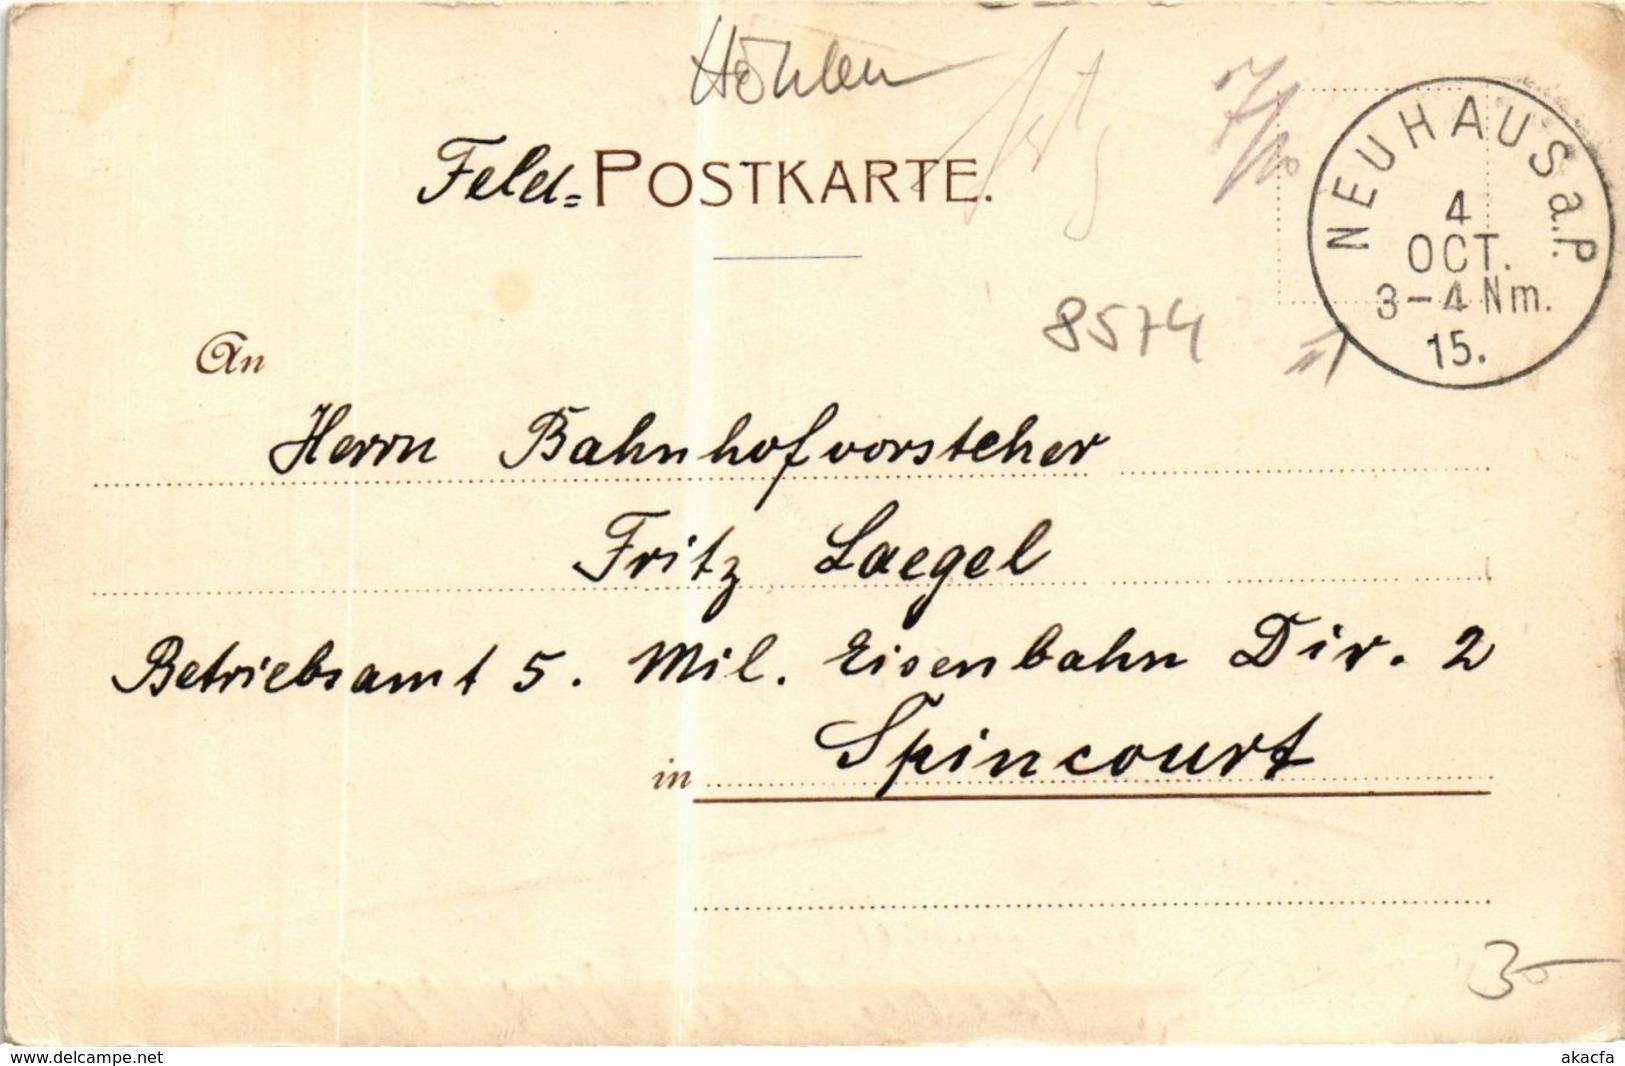 Höhlen
Feld=POSTKARTE.
NEUHAUS a.P.
4
OCT.
3-4 Nm.
15.
8574
An
Herrn Bahnhofvorsteher
Fritz Laegel
Betriebsamt 5. Mil. Eisenbahn Dir. 2
in Spincourt
www.delcampe.net
akacfa